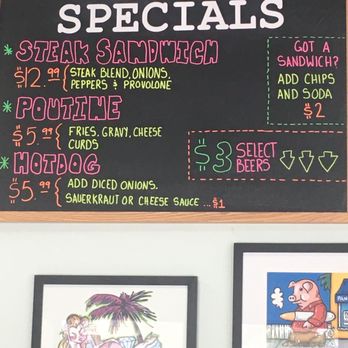 SPECIALS
* STEAK SANDWICH
$12.99 { STEAK BLEND, ONIONS,
PEPPERS & PROVOLONE
* POUTINE
$5.99 { FRIES, GRAVY, CHEESE
CURDS
* HOTDOG
$5.99 { ADD DICED ONIONS,
SAUERKRAUT OR CHEESE SAUCE ...$1
GOT A
SANDWICH?
ADD CHIPS
AND SODA
$2
$3 SELECT
BEERS